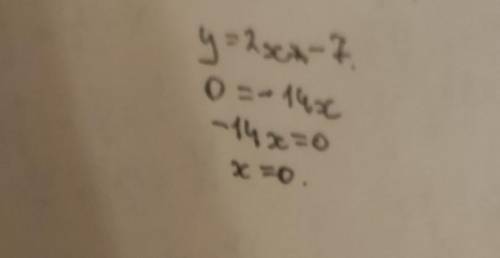 y=2x*-7.
0=-14x
-14x=0
x=0.